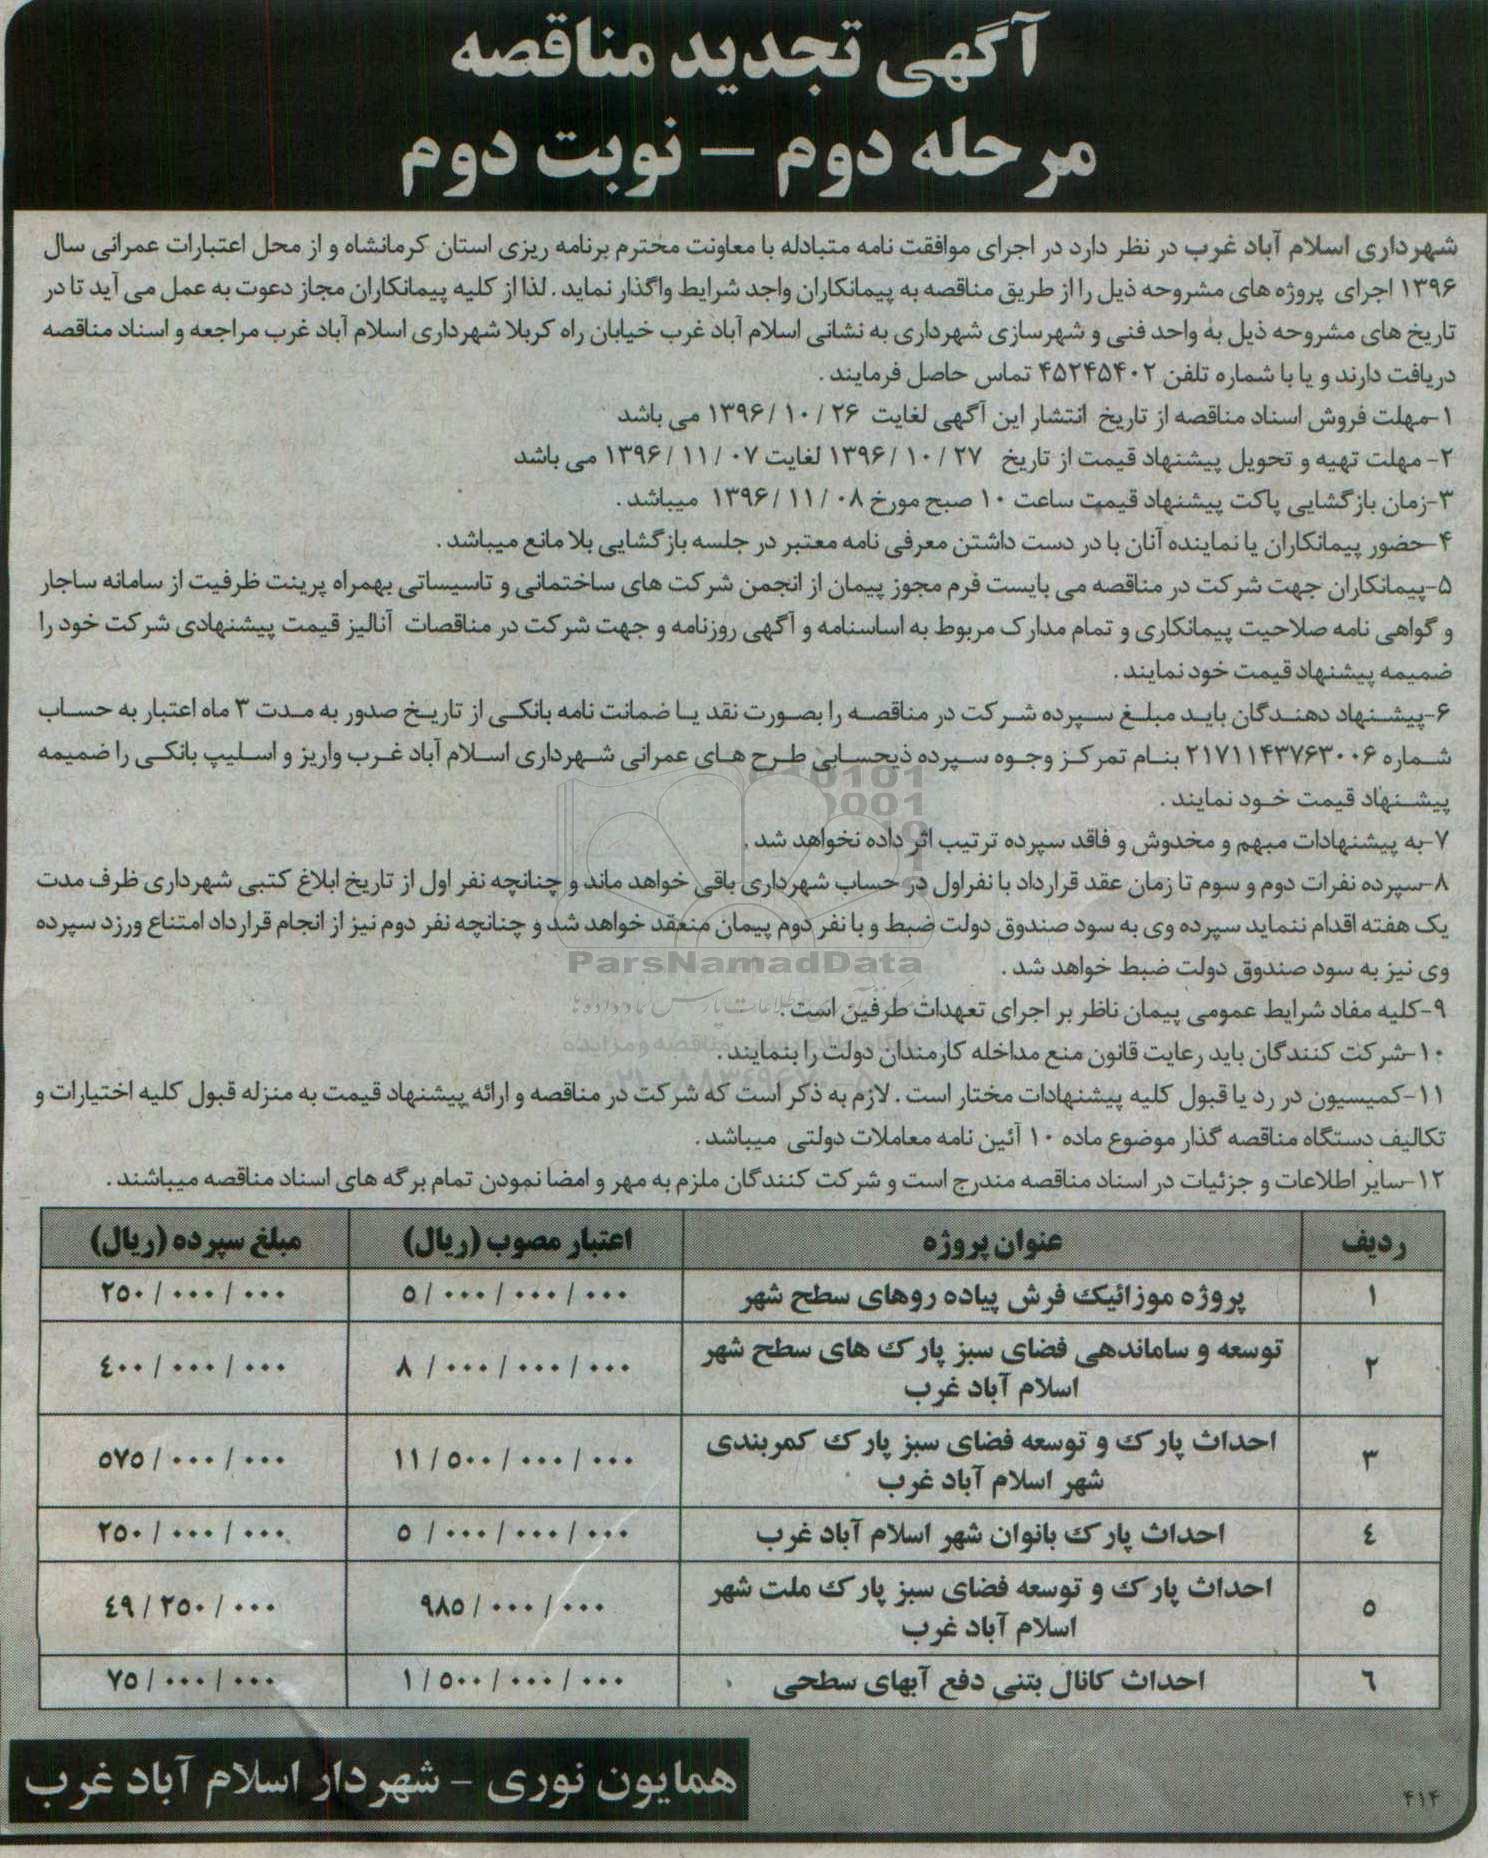 آگهی تجدید مناقصه
مرحله دوم – نوبت دوم
شهرداری اسلام آباد غرب در نظر دارد در اجرای موافقت نامه متبادله با معاونت محترم برنامه ریزی استان کرمانشاه و از محل اعتبارات عمرانی سال
۱۳۹۶ اجرای پروژه های مشروحه ذیل را از طریق مناقصه به پیمانکاران واجد شرایط واگذار نماید. لذا از کلیه پیمانکاران مجاز دعوت به عمل می آید تا در
تاریخ های مشروحه ذیل به واحد فنی و شهرسازی شهرداری به نشانی اسلام آباد غرب خیابان راه کربلا شهرداری اسلام آباد غرب مراجعه و اسناد مناقصه
دریافت دارند و یا با شماره تلفن ۴۵۲۴۵۴۰۲ تماس حاصل فرمایند.
۱-مهلت فروش اسناد مناقصه از تاریخ انتشار این آگهی لغایت ۲۶ / ۱۰ / ۱۳۹۶ می باشد
۲- مهلت تهیه و تحویل پیشنهاد قیمت از تاریخ ۲۷ / ۱۰ / ۱۳۹۶ لغایت ۰۷ / ۱۱ / ۱۳۹۶ می باشد
۳-زمان بازگشایی پاکت پیشنهاد قیمت ساعت ۱۰ صبح مورخ ۰۸ / ۱۱ / ۱۳۹۶ میباشد.
۴-حضور پیمانکاران یا نماینده آنان با در دست داشتن معرفی نامه معتبر در جلسه بازگشایی بلا مانع میباشد.
۵-پیمانکاران جهت شرکت در مناقصه می بایست فرم مجوز پیمان از انجمن شرکت های ساختمانی و تاسیساتی بهمراه پرینت ظرفیت از سامانه ساجار
و گواهی نامه صلاحیت پیمانکاری و تمام مدارک مربوط به اساسنامه و آگهی روزنامه و جهت شرکت در مناقصات آنالیز قیمت پیشنهادی شرکت خود را
ضمیمه پیشنهاد قیمت خود نمایند.
۶-پیشنهاد دهندگان باید مبلغ سپرده شرکت در مناقصه را بصورت نقد یا ضمانت نامه بانکی از تاریخ صدور به مدت ۳ ماه اعتبار به حساب
شماره ۲۱۷۱۱۴۳۷۶۳۰۰۶ بنام تمرکز وجوه سپرده ذیحسابی طرح های عمرانی شهرداری اسلام آباد غرب واریز و اسلیپ بانکی را ضمیمه
پیشنهاد قیمت خود نمایند.
۷-به پیشنهادات مبهم و مخدوش و فاقد سپرده ترتیب اثر داده نخواهد شد.
۸-سپرده نفرات دوم و سوم تا زمان عقد قرارداد با نفراول در حساب شهرداری باقی خواهد ماند و چنانچه نفر اول از تاریخ ابلاغ کتبی شهرداری ظرف مدت
یک هفته اقدام ننماید سپرده وی به سود صندوق دولت ضبط و با نفر دوم پیمان منعقد خواهد شد و چنانچه نفر دوم نیز از انجام قرارداد امتناع ورزد سپرده
وی نیز به سود صندوق دولت ضبط خواهد شد.
ParsNamadData
۹-کلیه مفاد شرایط عمومی پیمان ناظر بر اجرای تعهدات طرفین است.
۱۰-شرکت کنندگان باید رعایت قانون منع مداخله کارمندان دولت را بنمایند.
۱۱-کمیسیون در رد یا قبول کلیه پیشنهادات مختار است. لازم به ذکر است که شرکت در مناقصه و ارائه پیشنهاد قیمت به منزله قبول کلیه اختیارات و
تکالیف دستگاه مناقصه گذار موضوع ماده ۱۰ آئین نامه معاملات دولتی میباشد.
۱۲-سایر اطلاعات و جزئیات در اسناد مناقصه مندرج است و شرکت کنندگان ملزم به مهر و امضا نمودن تمام برگه های اسناد مناقصه میباشند.
ردیف عنوان پروژه اعتبار مصوب (ریال) مبلغ سپرده (ریال)
۱ پروژه موزائیک فرش پیاده روهای سطح شهر ۵/۰۰۰/۰۰۰/۰۰۰ ۲۵۰/۰۰۰/۰۰۰
۲ توسعه و ساماندهی فضای سبز پارک های سطح شهر
اسلام آباد غرب ۸/۰۰۰/۰۰۰/۰۰۰ ۴۰۰/۰۰۰/۰۰۰
۳ احداث پارک و توسعه فضای سبز پارک کمربندی
شهر اسلام آباد غرب ۱۱/۵۰۰/۰۰۰/۰۰۰ ۵۷۵/۰۰۰/۰۰۰
٤ احداث پارک بانوان شهر اسلام آباد غرب ۵/۰۰۰/۰۰۰/۰۰۰ ۲۵۰/۰۰۰/۰۰۰
۵ احداث پارک و توسعه فضای سبز پارک ملت شهر
اسلام آباد غرب ۹۸۵/۰۰۰/۰۰۰ ٤۹/۲۵۰/۰۰۰
٦ احداث کانال بتنی دفع آبهای سطحی ۱/۵۰۰/۰۰۰/۰۰۰ ۷۵/۰۰۰/۰۰۰
همایون نوری - شهردار اسلام آباد غرب
۴۱۴